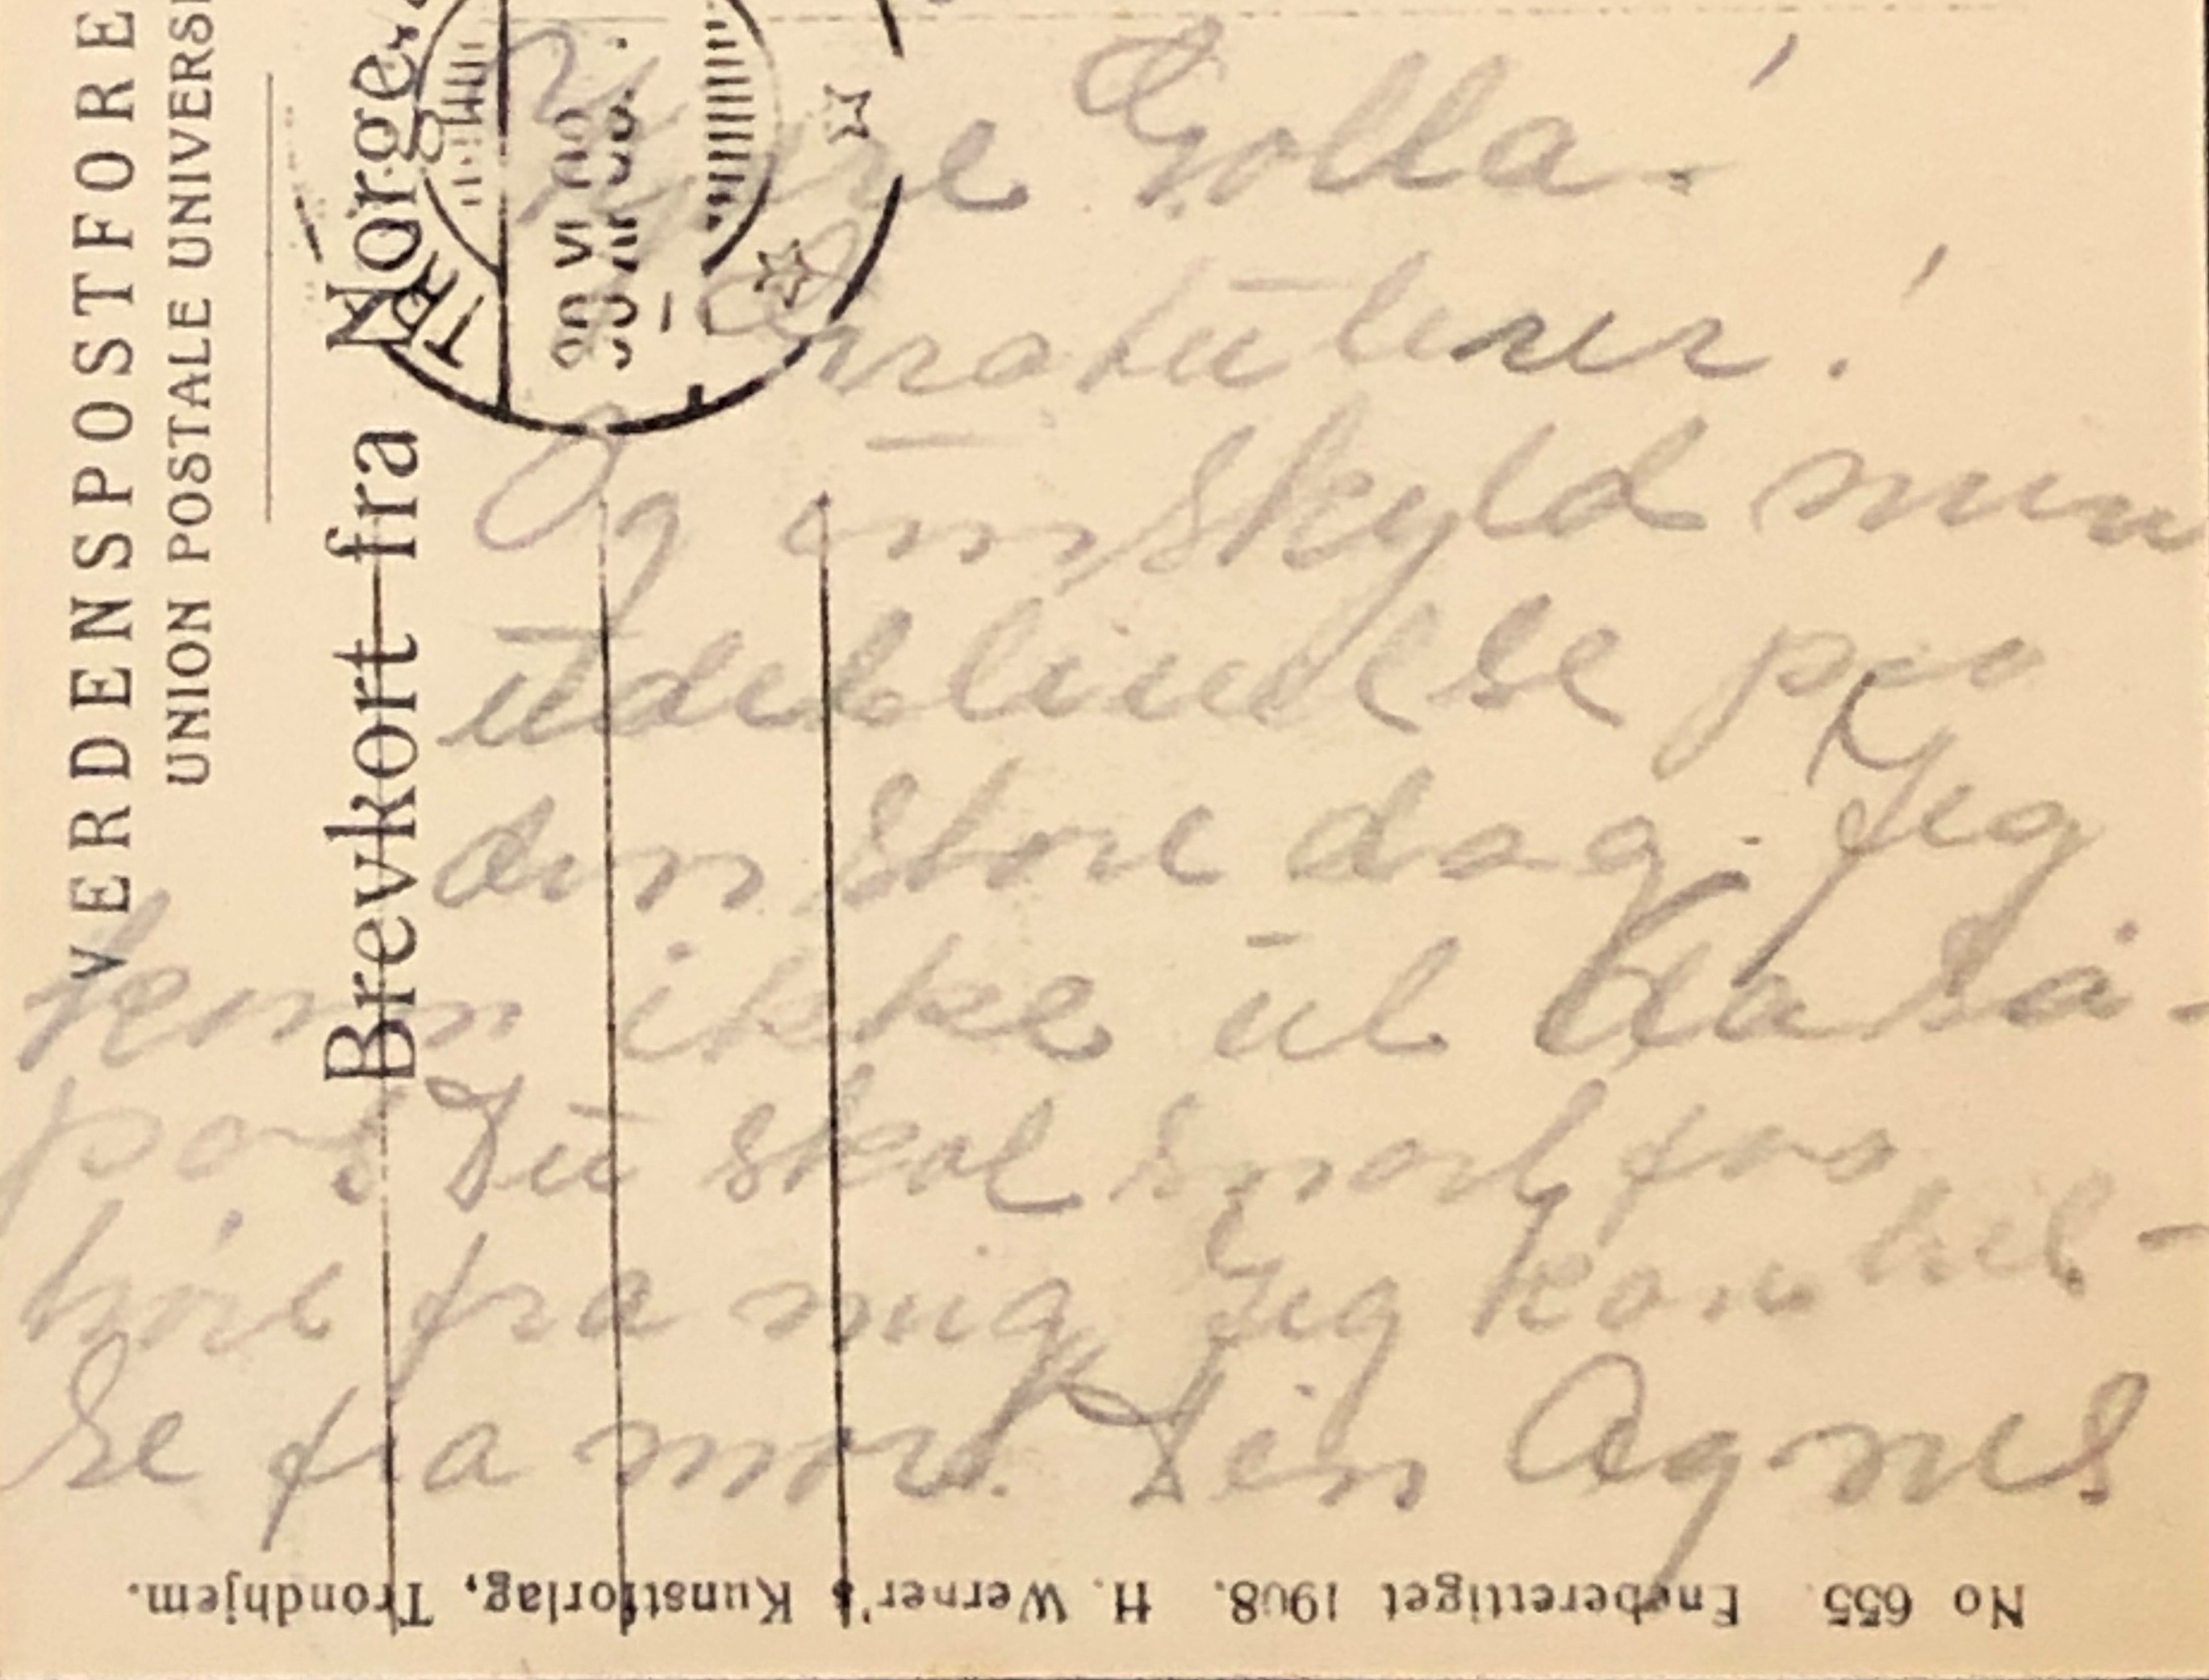 VERDENSPOSTFORE
UNION POSTALE UNIVERS
Brevkort fra Norge.
Kjære Golla!
Gratulerer!
Og unskyld min
udeblivelse paa
din store dag. Jeg
kom ikke
Du skal snart faa
høre fra mig. Jeg kan hil-
se fra mor. Din Agnes
No 655. Eneberettiget 1908. H. Werner's Kunstforlag, Trondhjem.